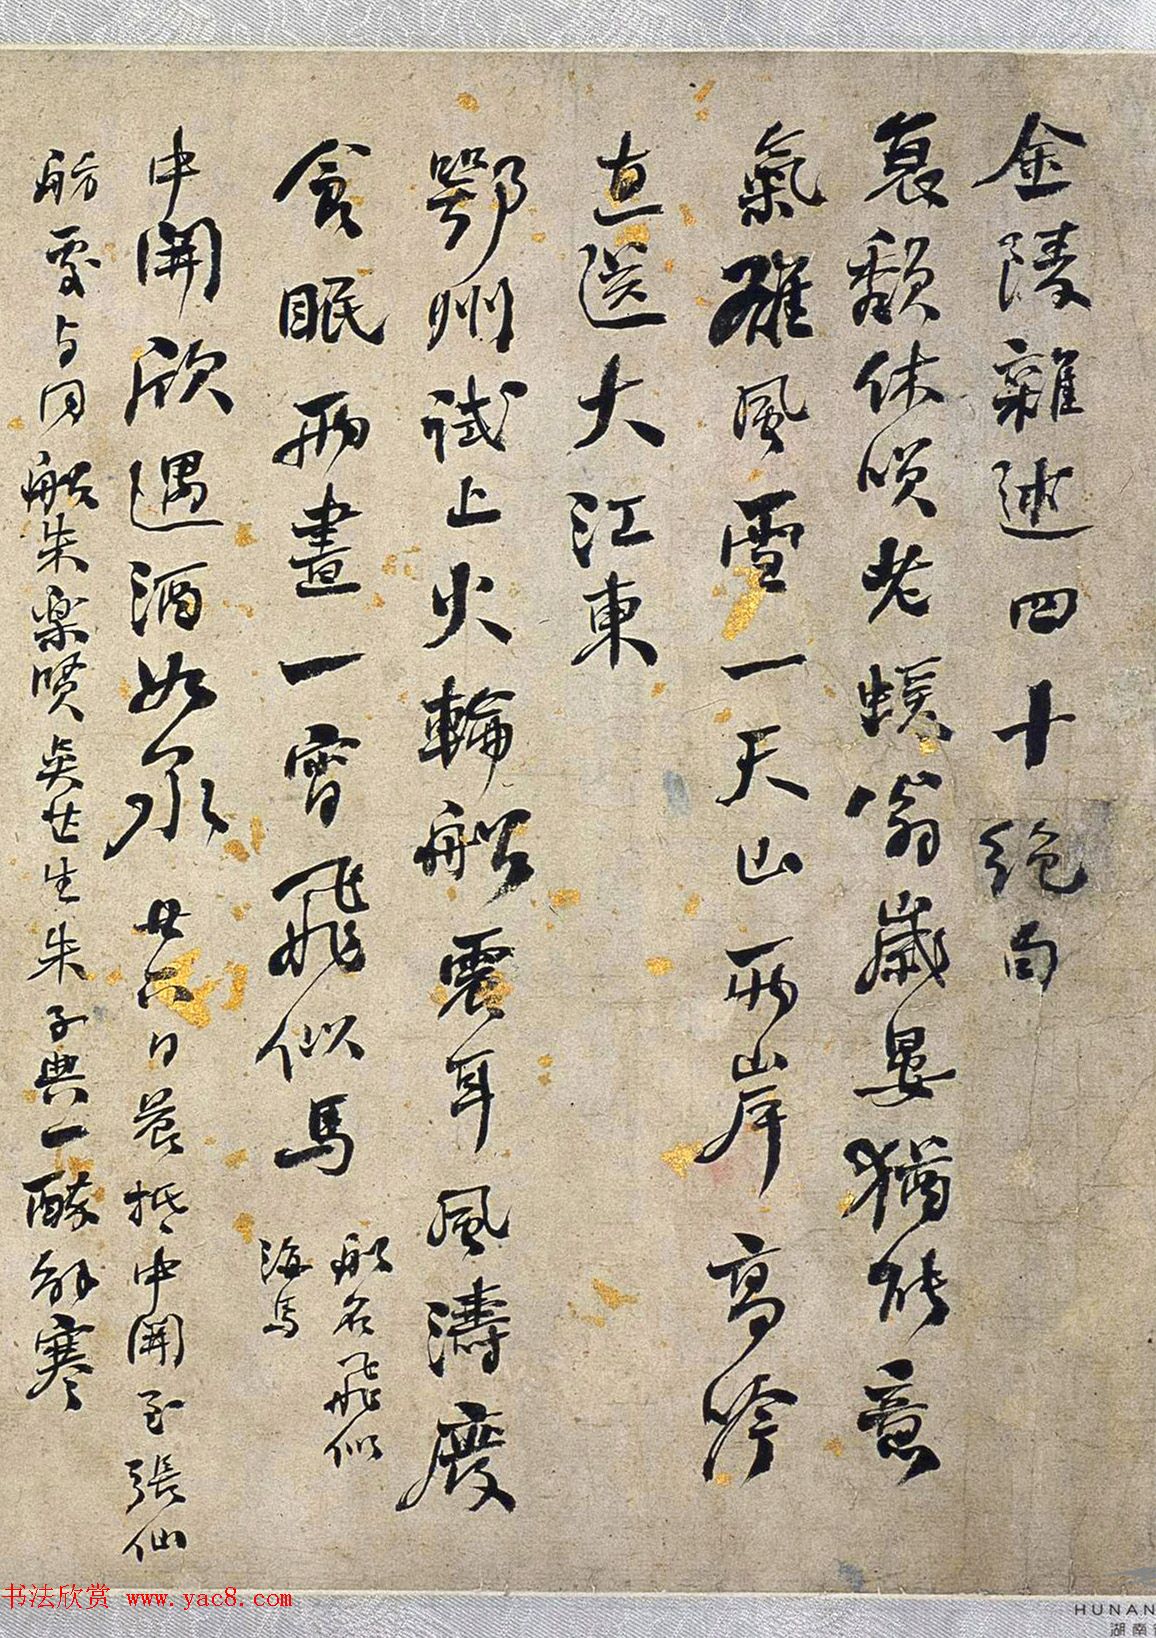 金陵雜述四十絕句
哀頹休嘆老螇翁歲晏猶能意
氣雄風雪一天山兩岸高吟
直送大江東
鄂州試上火輪船震耳風濤廢
食眠兩晝一宵飛似馬
船名飛似
海馬
中關欣遇酒如泉 廿六日晨抵中關至張仙
舫處与同船朱樂賢吳芷生朱子典一醉解寒
书法欣赏 www.yac8.com
HUNAN
湖南省